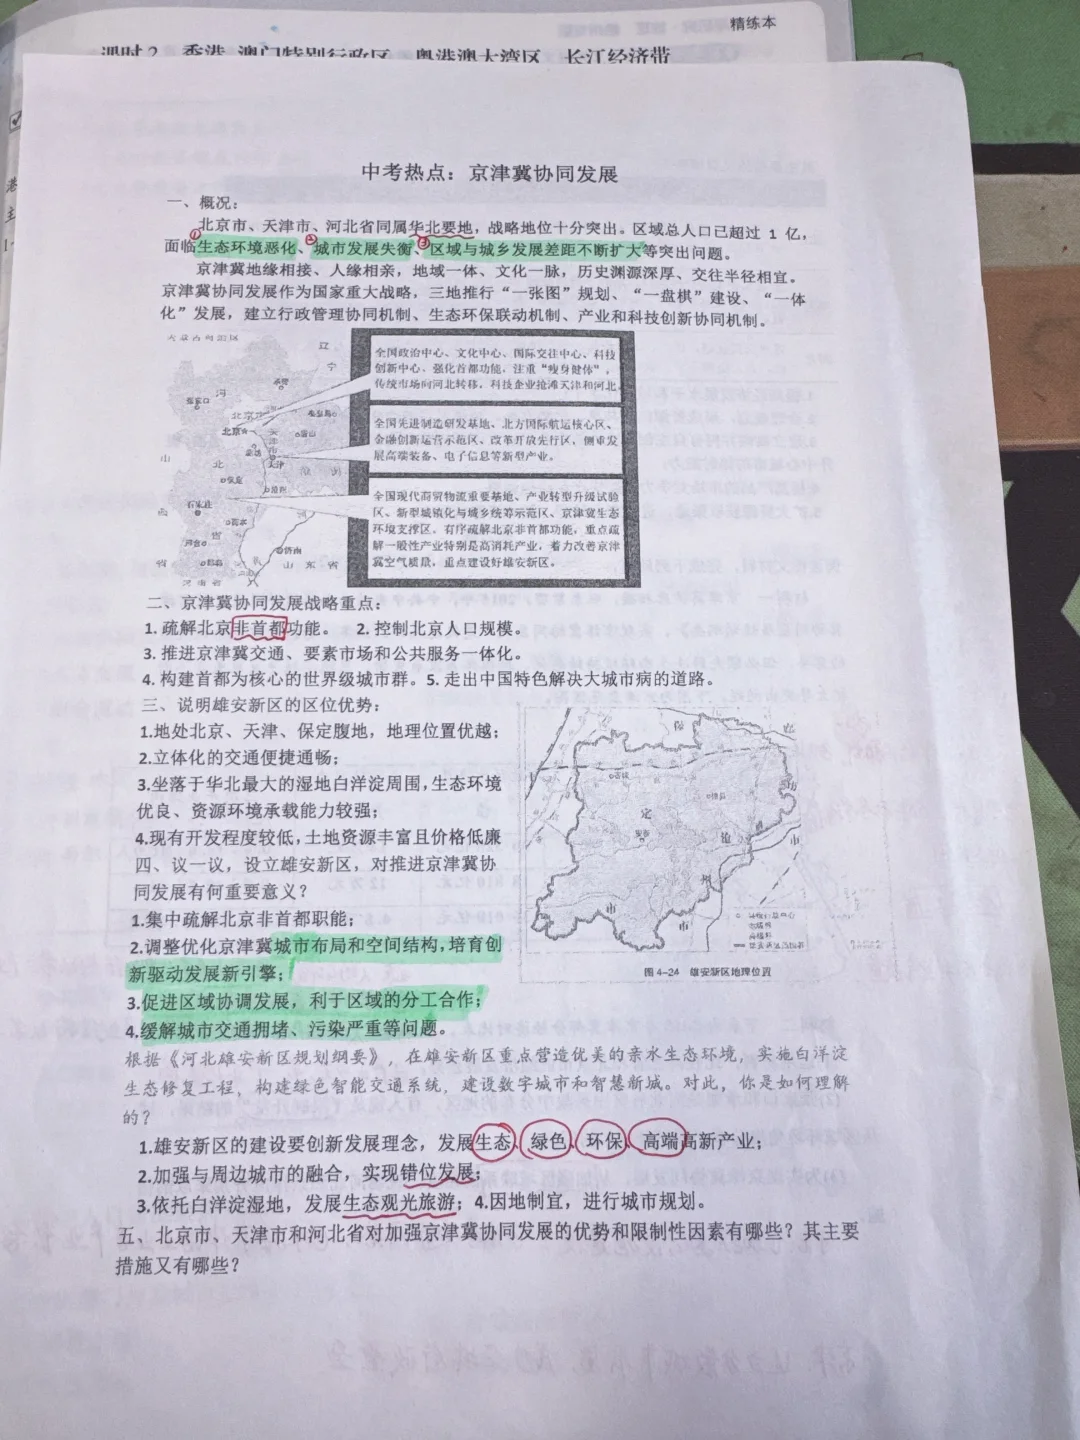 精练本
课时2 香港、澳门特别行政区 粤港澳大湾区 长江经济带
中考热点：京津冀协同发展
一、概况：
北京市、天津市、河北省同属华北要地，战略地位十分突出。区域总人口已超过 1 亿，
面临①生态环境恶化、②城市发展失衡、③区域与城乡发展差距不断扩大等突出问题。
京津冀地缘相接、人缘相亲，地域一体、文化一脉，历史渊源深厚、交往半径相宜。
京津冀协同发展作为国家重大战略，三地推行“一张图”规划、“一盘棋”建设、“一体
化”发展，建立行政管理协同机制、生态环保联动机制、产业和科技创新协同机制。
全国政治中心、文化中心、国际交往中心、科技
创新中心。强化首都功能，注重“瘦身健体”，
传统市场向河北转移，科技企业抢滩天津和河北。
全国先进制造研发基地、北方国际航运核心区、
金融创新运营示范区、改革开放先行区，侧重发
展高端装备、电子信息等新型产业。
全国现代商贸物流重要基地、产业转型升级试验
区、新型城镇化与城乡统筹示范区、京津冀生态
环境支撑区。有序疏解北京非首都功能，重点疏
解一般性产业特别是高消耗产业，着力改善京津
冀空气质量，重点建设好雄安新区。
辽
宁
承德
张家口
河
北京
秦皇岛
唐山
天津
山
北
保定
沧州
石家庄
西
衡水
济南
省
山 东 省
河南省
二、京津冀协同发展战略重点：
1. 疏解北京非首都功能。 2. 控制北京人口规模。
3. 推进京津冀交通、要素市场和公共服务一体化。
4. 构建首都为核心的世界级城市群。5. 走出中国特色解决大城市病的道路。
三、说明雄安新区的区位优势：
1.地处北京、天津、保定腹地，地理位置优越；
2.立体化的交通便捷通畅；
3.坐落于华北最大的湿地白洋淀周围，生态环境
优良、资源环境承载能力较强；
4.现有开发程度较低，土地资源丰富且价格低廉
定
市
沧
州
市
图 4-24 雄安新区地理位置
四、议一议，设立雄安新区，对推进京津冀协
同发展有何重要意义？
1.集中疏解北京非首都职能；
2.调整优化京津冀城市布局和空间结构，培育创
新驱动发展新引擎；
3.促进区域协调发展，利于区域的分工合作；
4.缓解城市交通拥堵、污染严重等问题。
根据《河北雄安新区规划纲要》，在雄安新区重点营造优美的亲水生态环境，实施白洋淀
生态修复工程，构建绿色智能交通系统，建设数字城市和智慧新城。对此，你是如何理解
的？
1.雄安新区的建设要创新发展理念，发展生态、绿色、环保、高端高新产业；
2.加强与周边城市的融合，实现错位发展；
3.依托白洋淀湿地，发展生态观光旅游；4.因地制宜，进行城市规划。
五、北京市、天津市和河北省对加强京津冀协同发展的优势和限制性因素有哪些？其主要
措施又有哪些？